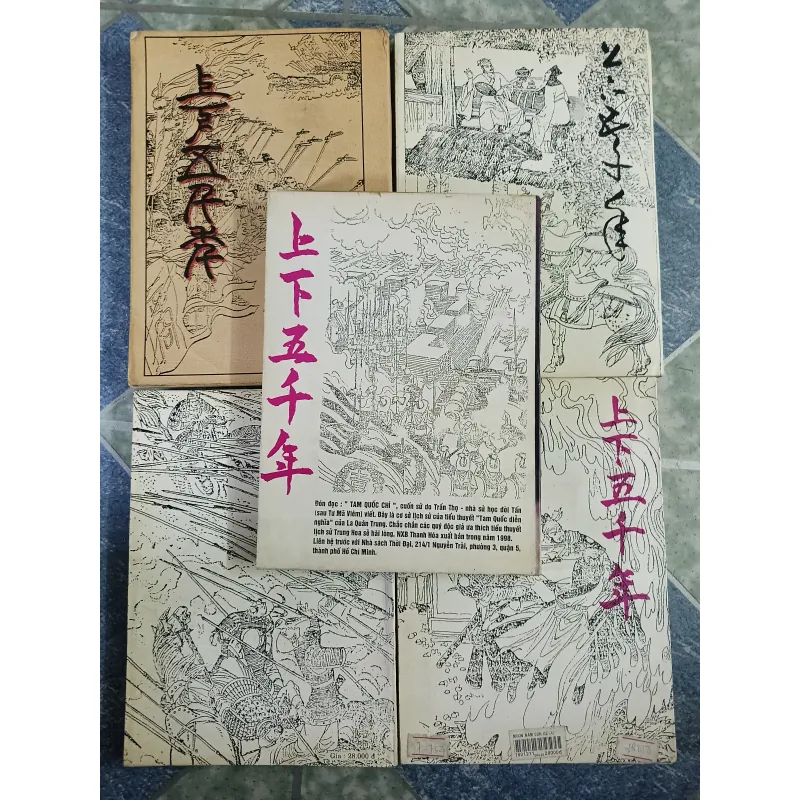 上下五千年
上下五千年
上下五千年
Đón đọc : " TAM QUỐC CHÍ ", cuốn sử do Trần Thọ - nhà sử học đời Tấn
(sau Tư Mã Viêm) viết. Đây là cơ sở lịch sử của tiểu thuyết "Tam Quốc diễn
nghĩa" của La Quán Trung. Chắc chắn các quý độc giả ưa thích tiểu thuyết
lịch sử Trung Hoa sẽ hài lòng. NXB Thanh Hóa xuất bản trong năm 1998.
Liên hệ trước với Nhà sách Thời Đại, 214/1 Nguyễn Trãi, phường 3, quận 5,
thành phố Hồ Chí Minh.
上下五千年
Gía : 28.000 đ